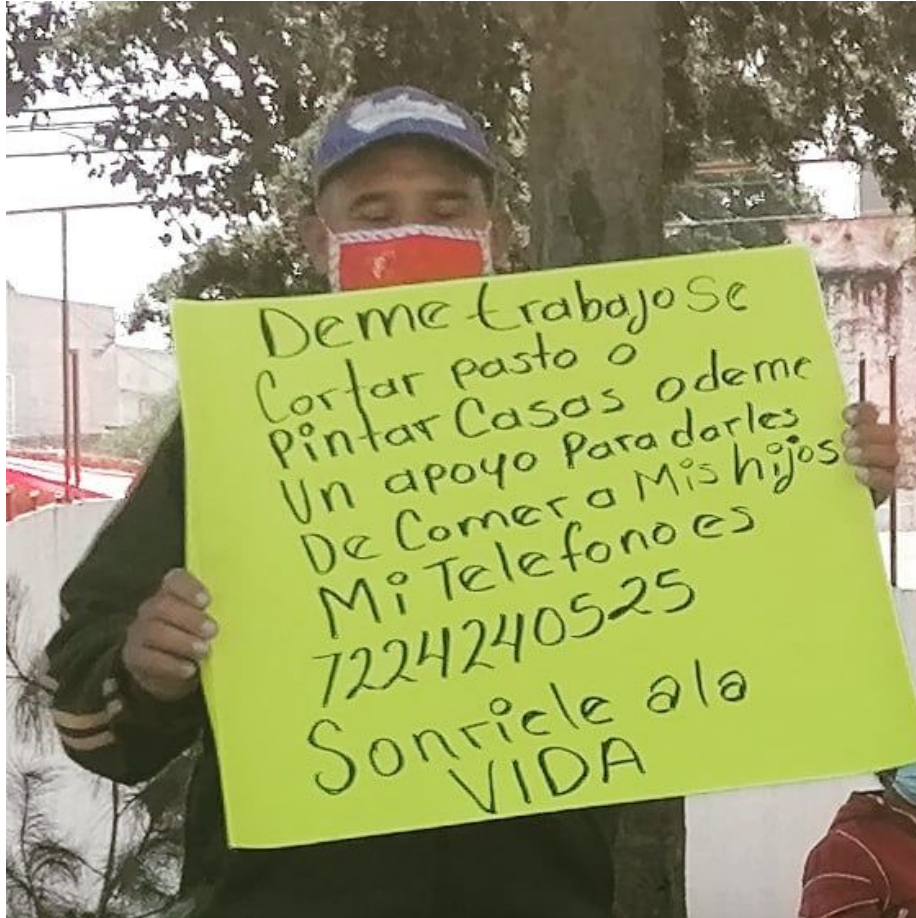 Deme trabajo Se
Cortar pasto o
Pintar Casas o deme
Un apoyo Para darles
De Comer a Mis hijos
Mi Telefono es
7224240525
Sonriele a la
VIDA